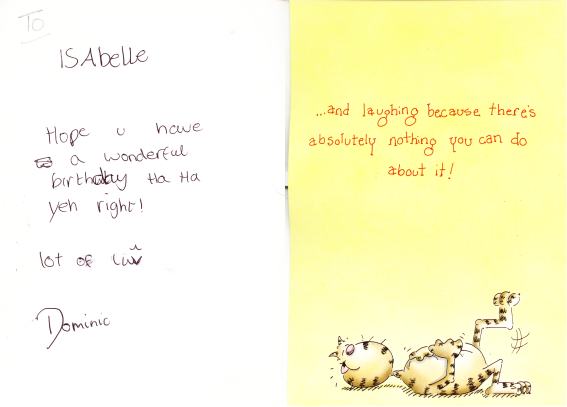 To
ISAbelle
Hope u have
a wonderful
birthday Ha Ha
yeh right!
lot of luv
Dominic
...and laughing because there's
absolutely nothing you can do
about it!